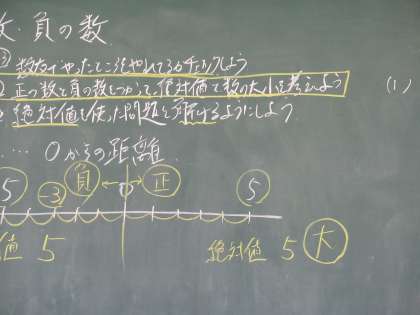 ・負の数
③ 数直線でやったことをやれてるかチェックしよう
② 正の数と負の数とつかって、絶対値で数の大小を考えよう
(1)
絶対値を使った問題を解けるようにしよう
…… 0からの距離
5 ③ 負 0 正 5
値 5 絶対値 5 大